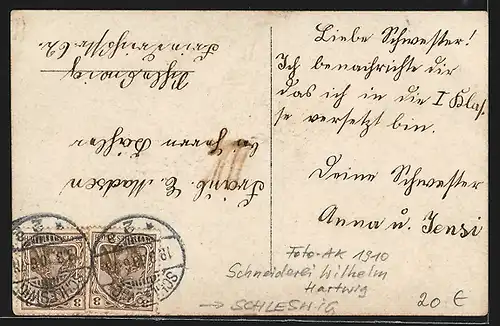 Liebe Schwester!
Ich benachrichte dir
das ich in die I Klas-
se versetzt bin.
Deine Schwester
Anna u. Jensi
Fräul. C. Madsen
bei Herrn Böhler
Schleswig
Friedrichstr. 62.
Foto-AK 1910
Schneiderei Wilhelm
Hartwig
→ SCHLESWIG
20 €
SCHLESWIG
3
3